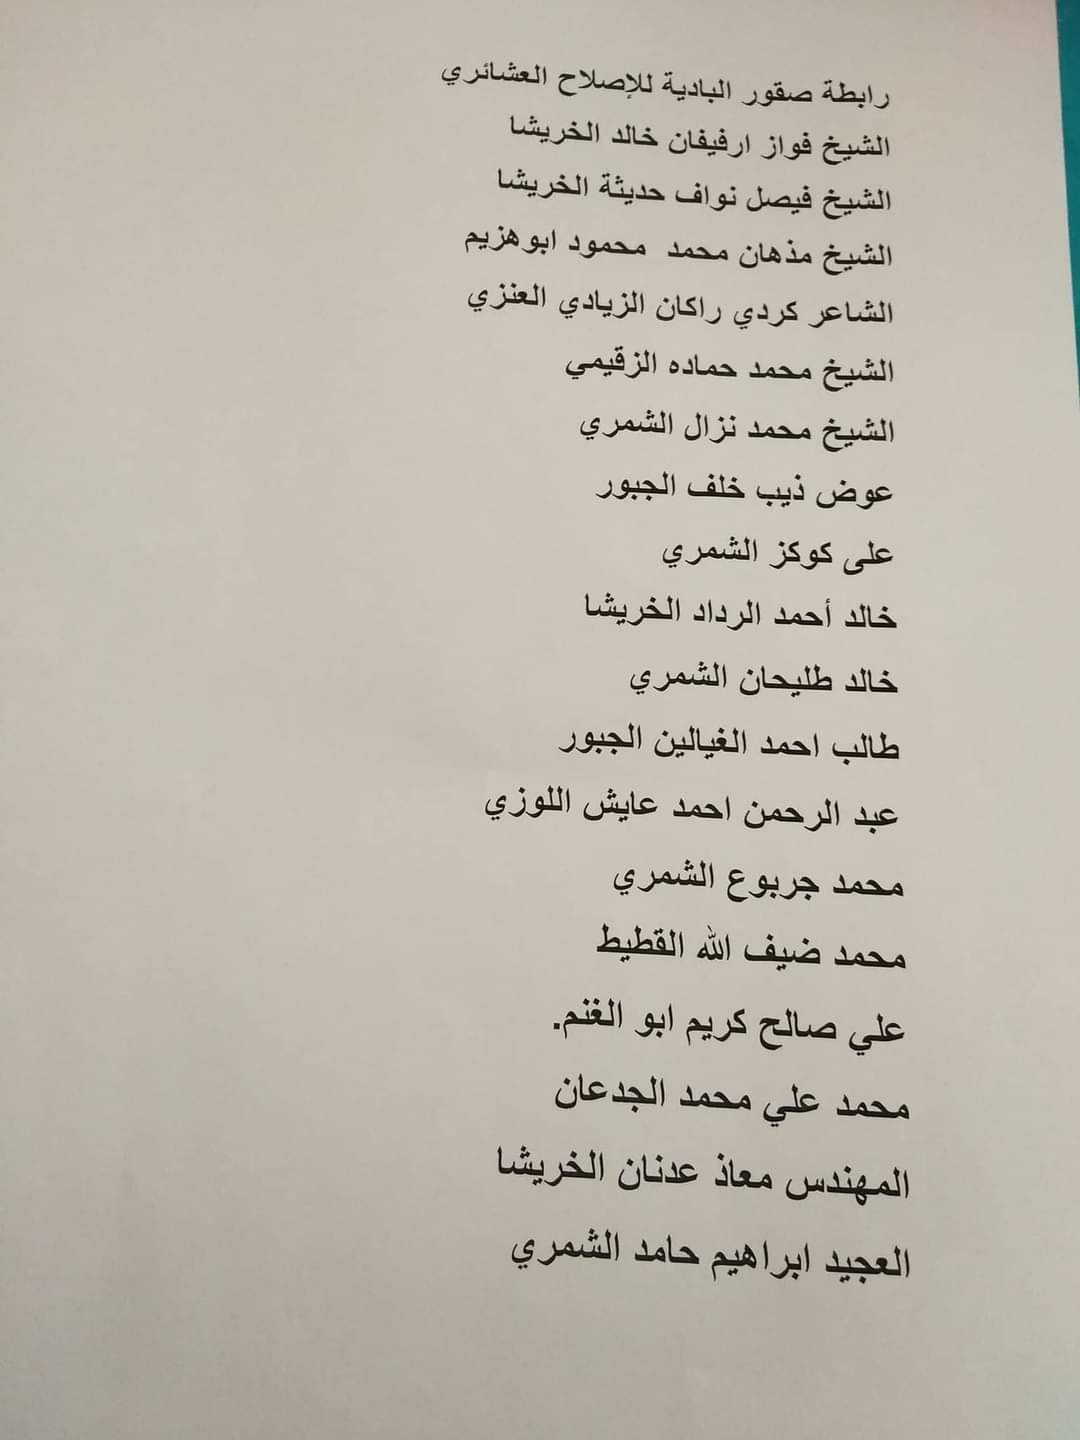 رابطة صقور البادية للإصلاح العشائري
الشيخ فواز ارفيفان خالد الخريشا
الشيخ فيصل نواف حديثة الخريشا
الشيخ مذهان محمد محمود ابوهزيم
الشاعر كردي راكان الزيادي العنزي
الشيخ محمد حماده الزقيمي
الشيخ محمد نزال الشمري
عوض ذيب خلف الجبور
على كوكز الشمري
خالد أحمد الرداد الخريشا
خالد طليحان الشمري
طالب احمد الغيالين الجبور
عبد الرحمن احمد عايش اللوزي
محمد جربوع الشمري
محمد ضيف الله القطيط
علي صالح كريم ابو الغنم.
محمد علي محمد الجدعان
المهندس معاذ عدنان الخريشا
العجيد ابراهيم حامد الشمري